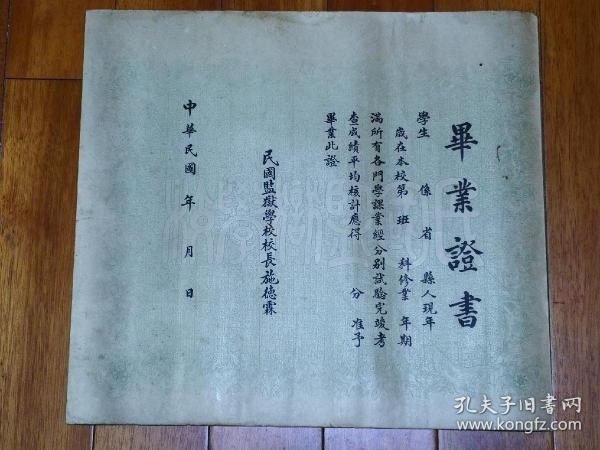 畢業證書
學生 係 省 縣人現年
歲在本校第 班 科修業 年期
滿所有各門學課業經分别試驗完竣考
查成績平均核計應得 分 准予
畢業此證
民國監獄學校校長施德霖
中華民國 年 月 日
孔夫子旧书网
www.kongfz.com